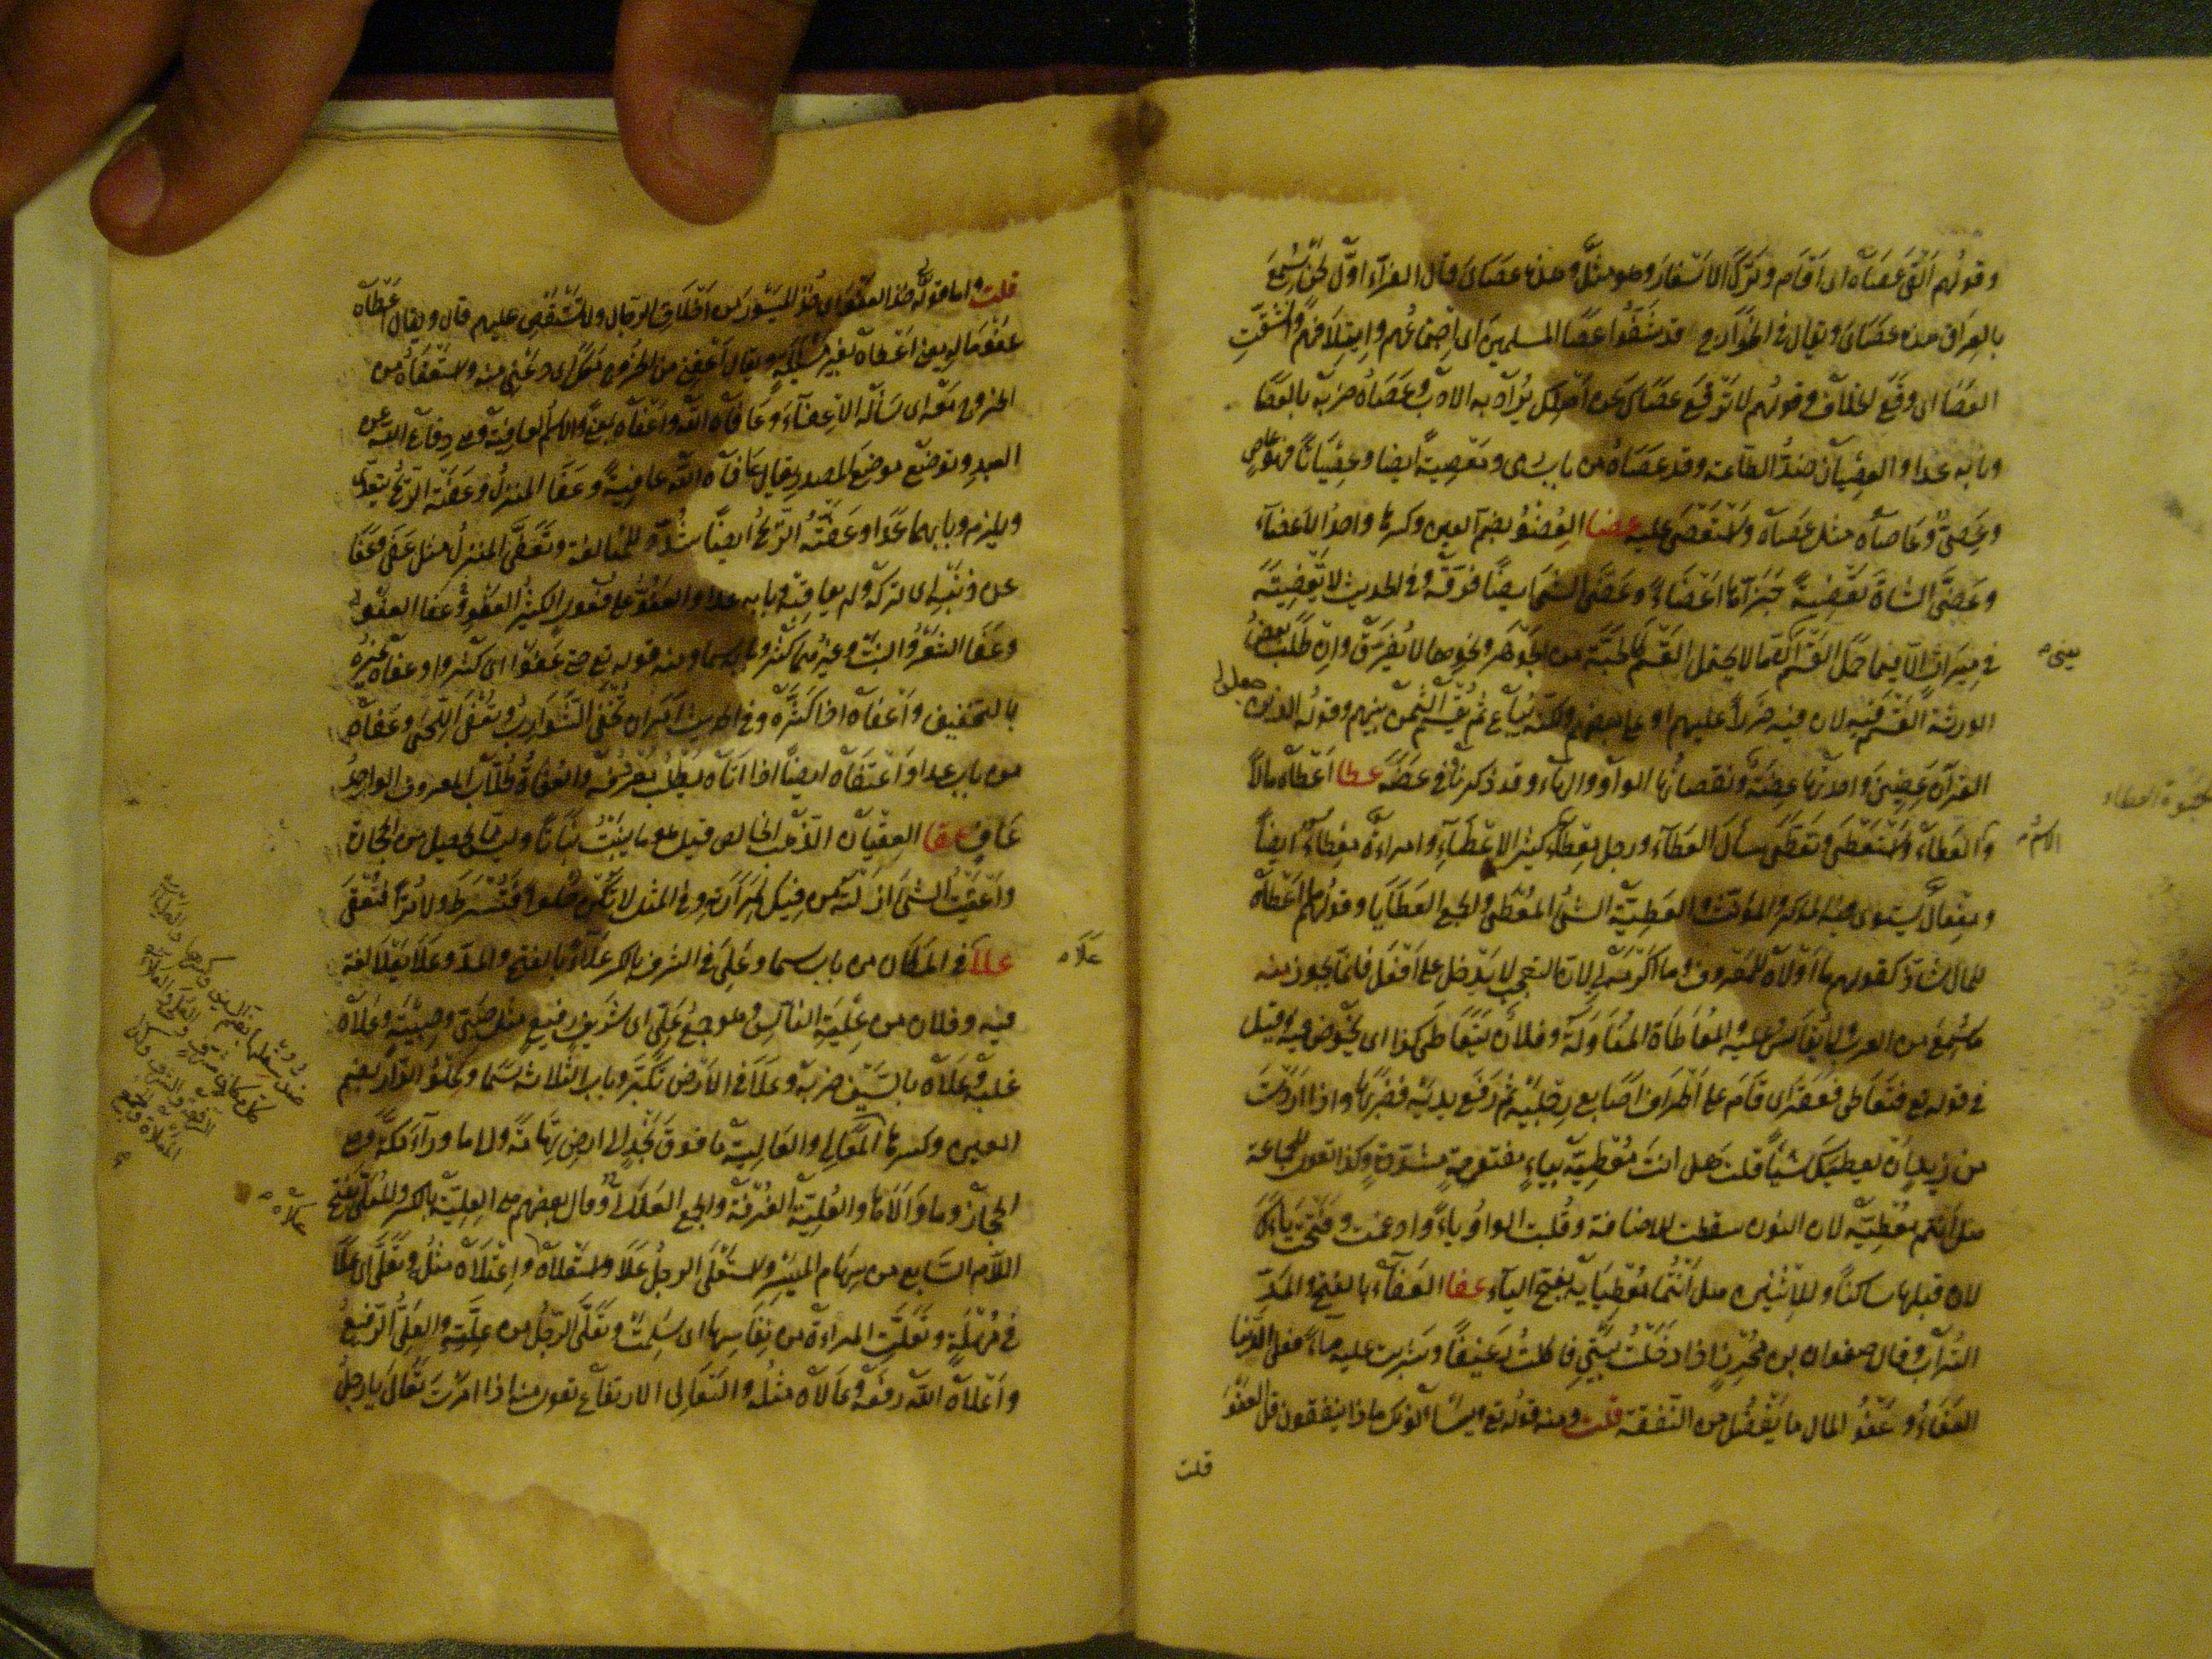 وقولهم اَلْقَى عَصَاه اى اَقَام وتَرَكَ الاَسْفَار وهو مثلٌ وهذه عصَاىَ وقال الفرّاء اوّل لحنٍ سُمِعَ
بالعِرَاق هذه عصَاتى ويقال فى الخَوَارِج قد شَقُّوا عصَا المسلمين اى اجتماعَهم وايتلافَهم وانشَقّتِ
العَصَا اى وقَع الخلاف وقولهم لا ترفَعْ عصَاكَ عن اَهلِك يُرَاد به الادب وعَصَاهُ ضربَه بالعَصَا
وبابه عدا والعِصْيَان ضدُّ الطّاعة وقد عصَاهُ من باب رَمى ومَعْصِيةً ايضا وعِصْيَاناً فهو عاصٍ
وعَصِىٌّ وعَاصَاه مثل عصَاه واستَعْصَى عليه عضا العُضوُ بضم العين وكسرها واحدُ الاَعضَاء
وعَضَّى الشاةَ تَعْضِيةً جَزَّأها اَعْضَاءً وعَضَّى الشىء ايضًا فرَّقَه وفى الحديث لا تَعْضِيَةَ
فى مِيرَاثٍ الّا فيما حمَل القَسْمَ اى ما لا يحتمل القَسْم كالحبَّة من الجَوهَر ونحوها لا يُفَرَّق وان طلَب بعضُ
الورثة القَسْم فيه لان فيه ضررًا عليهم او على بعضهم ولكنّه يُبَاع ثم يُقْسَم الثمن بينهم وقوله الذين جعلوا
القرآن عِضِينَ واحدتها عِضَةٌ ونقصانُها الواو والهاء وقد ذكرناه فى عضَه عطا اَعْطَاه مالًا
والعَطَاء واستَعْطَى وتَعَطَّى سأل العَطَاء ورجل مِعْطَاء كثير الاِعْطَاءِ وامراءة مِعْطَاءٌ ايضاً
ومِفْعَال يستوى فيه المذكر والمؤنث والعَطِيّة الشىُ المُعْطَى والجمع العَطَايَا وقولهم ما اَعْطَاه
للمال شاذّ كقولهم ما اَوْلَاه للمعروف وما اَكْرَمَه لى لان التعجب لا يَدْخل على اَفعَل فانما يجوز منه
ما سُمِعَ من العرب ولا يُقَاس عليه والمُعَاطَاة المُنَاوَلَة وفلانٌ يَتَعَاطَى كذا اى يَخُوض فيه وقيل
فى قوله تع فتعاطى فعقَرَ اى قَامَ على اَطْرَاف اَصَابِع رِجْلَيْه ثم رفَع يدَيْه فضرَبَها واذا اَرَدْتَ
من زيدٍ ان يُعطيَكَ شيئاً قلت هل انتَ مُعْطِيَّه بياءٍ مفتوحةٍ مشدّدةٍ وكذا تقول للجماعة
هل اَنتُم مُعْطِيَّه لان النون سقطت للاضافة وقُلبت الواو ياءً وادغمت وفتَحْتَ ياءَكَ
لان قبلها ساكنًا وللاِثنين هل اَنْتُما مُعْطِيَايَه بفتح الياء عفا العَفَآء بالفتح والمَدّ
التُرَاب وقال صفوان بن مُحْرِزٍ اذا دخَلْتُ بَيْتِى فاكلتُ رَغِيفًا وشربت عليه ماءً فعلى الدّنيا
العَفَاءُ وعَفْوُ المال ما يَفْضُل من النّفقة قلت ومنه قوله تع ويسألونك ماذا ينفقون قل العَفْوَ
قلت
الاسم
قلت واما قوله خذ العفو اى خذ المَيْسُور من اَخْلَاق الرّجال ولا تَسْتَقْصِ عليهم قال ويقال اَعْطَاه
عَفْوَ مَالِه يعنى اعطاه بغير مَسْألة ويقال اَعْفِنِى من الخروج معَكَ اى دعْنِى منه واستَعْفَاهُ من
الخروج معَه اى سَأله الاِعْفَاءَ وعَافَاه اللّه واَعْفَاه بمعنًى والاسمُ العافية وهى دِفَاع اللّه عن
العبدِ وتوضَع موضِع المصدر يقال عَافَاه اللّه عافِيةً وعَفَا المنزِلُ وعَفَتْه الرّيحُ يتعدّى
ويلزم وبابهما عَدَا وعَفَّتْهُ الرّيحُ ايضًا شُدِّد للمُبَالغة وتَعَفَّى المنزلُ مثل عَفَا وعَفَا
عن ذَنْبِه اى تركَه ولم يعاقبْهُ وبابه عدا والعَفُوُّ على فَعُولٍ الكثيرُ العَفْوِ وعَفَا
وعَفَا الشَعَرُ والنَبْت وغيرُهما كثُر وبابه سما ومنه قوله تع حتى عَفَوْا اى كثُروا وعفاه غَيْرُه
بالتخفيف واَعْفَاه اذا كثَّرَه وفى الحديث اَمَر ان تُحْفَى الشَّوَارِبُ وتُعْفَى اللِّحَى وعَفَاه
من باب عدا واعْتَفَاه ايضًا اذا اَتَاه يَطْلُب مَعْرُوفَه والعُفَاةُ طُلَّابُ المعروف الواحدُ
عَافٍ عقا العِقْيَان الذّهَب الخالِص قيل هو ما يَنْبُتُ نَبَاتًا وليس ممّا يحصل من الحجارة
واَعْقَيْتُ الشىَ اَزَلْتَه من فِيكَ لِمَرَارَتِه وفى المثل لا تكُنْ حُلْوًا فتُسْتَرَطَ ولا مُرًّا فتُعْقَى
علا فى المَكَان من باب سما وعَلِىَ فى الشرف بالكسر عَلَاءً بالفتح والمد وعَلَا يَعْلَا لغة
فيه وفلان من عِلْيَةِ الناس وهو جمعُ عَلِىّ اى شَرِيفٍ رفيعٍ مثل صَبِىّ وصِبْيَة وعَلَاه
غلبَه وعَلَاه بالسَّيْف ضربَه وعَلَا فى الاَرْض تكبَّر وباب الثلاثة سَمَا وعُلْوُ الدّار بضم
العين وكسرها والعَالِيَةُ ما فوقَ نَجْدٍ الى ارضِ تِهَامَة والى ما ورآء مَكّة وهى
الحجاز وما وَالَاها والعُلِيّة الغُرْفَة والجمع العَلَالِى وقال بعضهم هى العِلِيّة بالكسر والمُعَلَّى بفتح
اللّام السّابِع من سِهَام المَيْسِر واستَعْلَى الرجلُ عَلَا واستَعْلَاه واعْتَلَاه مثلُه وتَعَلَّى اى عَلَا
فى مُهْلَةٍ وتَعَلَّتِ المراءة من نِفَاسِها اى سَلِمتْ وتَعَلَّى الرّجلُ من عِلَّتِه والعَلِىُّ الرّفيعُ
واَعْلَاه اللّه رفعَه وعَالَاه مثلُه والتعَالِى الارتفاع تقول منه اذا اَمَرْتَ تَعَالَ يا رجلُ
علاه